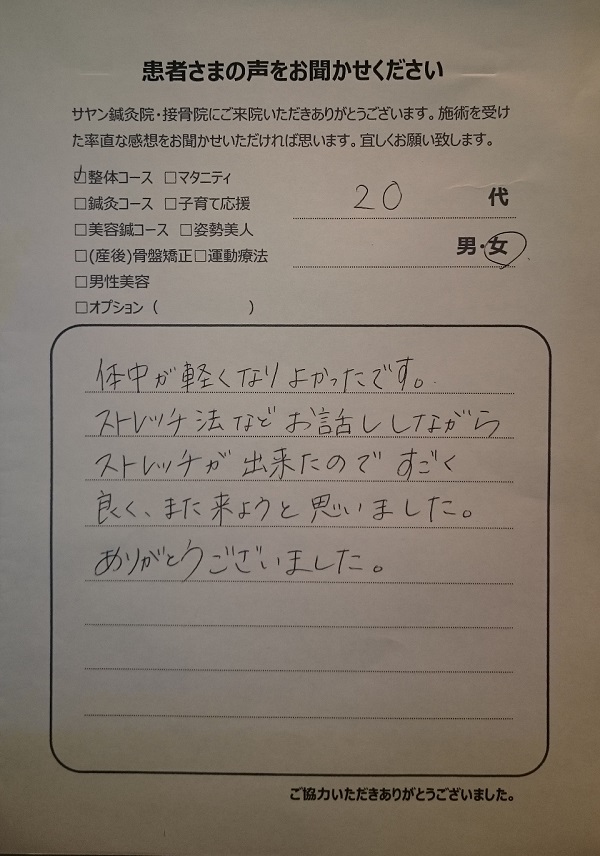 患者さまの声をお聞かせください
サヤン鍼灸院・接骨院にご来院いただきありがとうございます。施術を受け
た率直な感想をお聞かせいただければ思います。宜しくお願い致します。
☑整体コース □マタニティ
□鍼灸コース □子育て応援
□美容鍼コース □姿勢美人
□(産後)骨盤矯正□運動療法
□男性美容
□オプション（　　　　　）
20 代
男・女
体中が軽くなりよかったです。
ストレッチ法などお話ししながら
ストレッチが出来たのですごく
良く、また来ようと思いました。
ありがとうございました。
ご協力いただきありがとうございました。